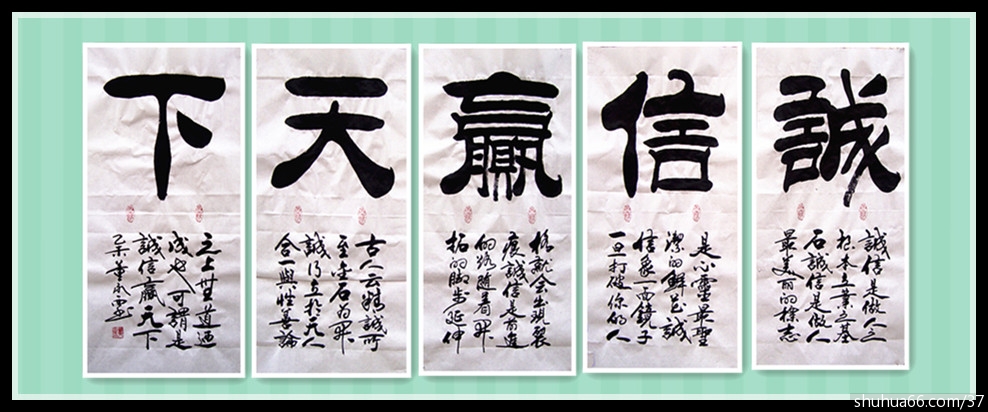 誠
誠信是做人之
根本立業之基
石誠信是做人
最美丽的標志
信
是心靈最聖
潔的鮮花誠
信象一面鏡子
一旦打破你的人
贏
格就会出現裂
痕誠信是前進
的路隨着開
拓的脚步延伸
天
古人云精誠所
至金石為開
誠信立於天人
合一與性善論
下
之上
成也可謂是
誠信贏天下
shuhua66.com/37